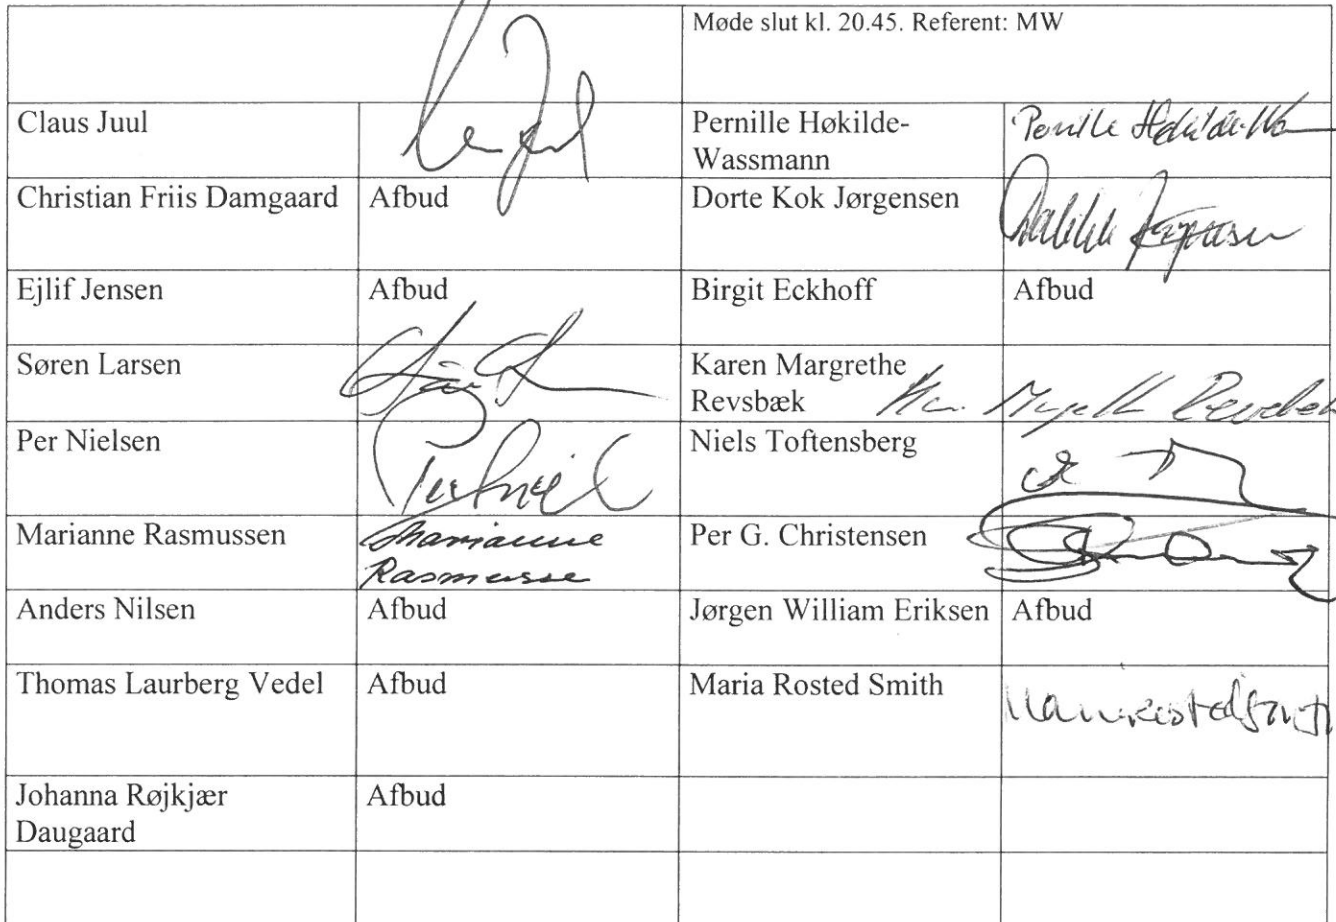 Møde slut kl. 20.45. Referent: MW
Claus Juul
Pernille Høkilde-
Wassmann
Christian Friis Damgaard
Afbud
Dorte Kok Jørgensen
Ejlif Jensen
Afbud
Birgit Eckhoff
Afbud
Søren Larsen
Karen Margrethe
Revsbæk
Per Nielsen
Niels Toftensberg
Marianne Rasmussen
Marianne
Rasmusse
Per G. Christensen
Anders Nilsen
Afbud
Jørgen William Eriksen
Afbud
Thomas Laurberg Vedel
Afbud
Maria Rosted Smith
Johanna Røjkjær
Daugaard
Afbud